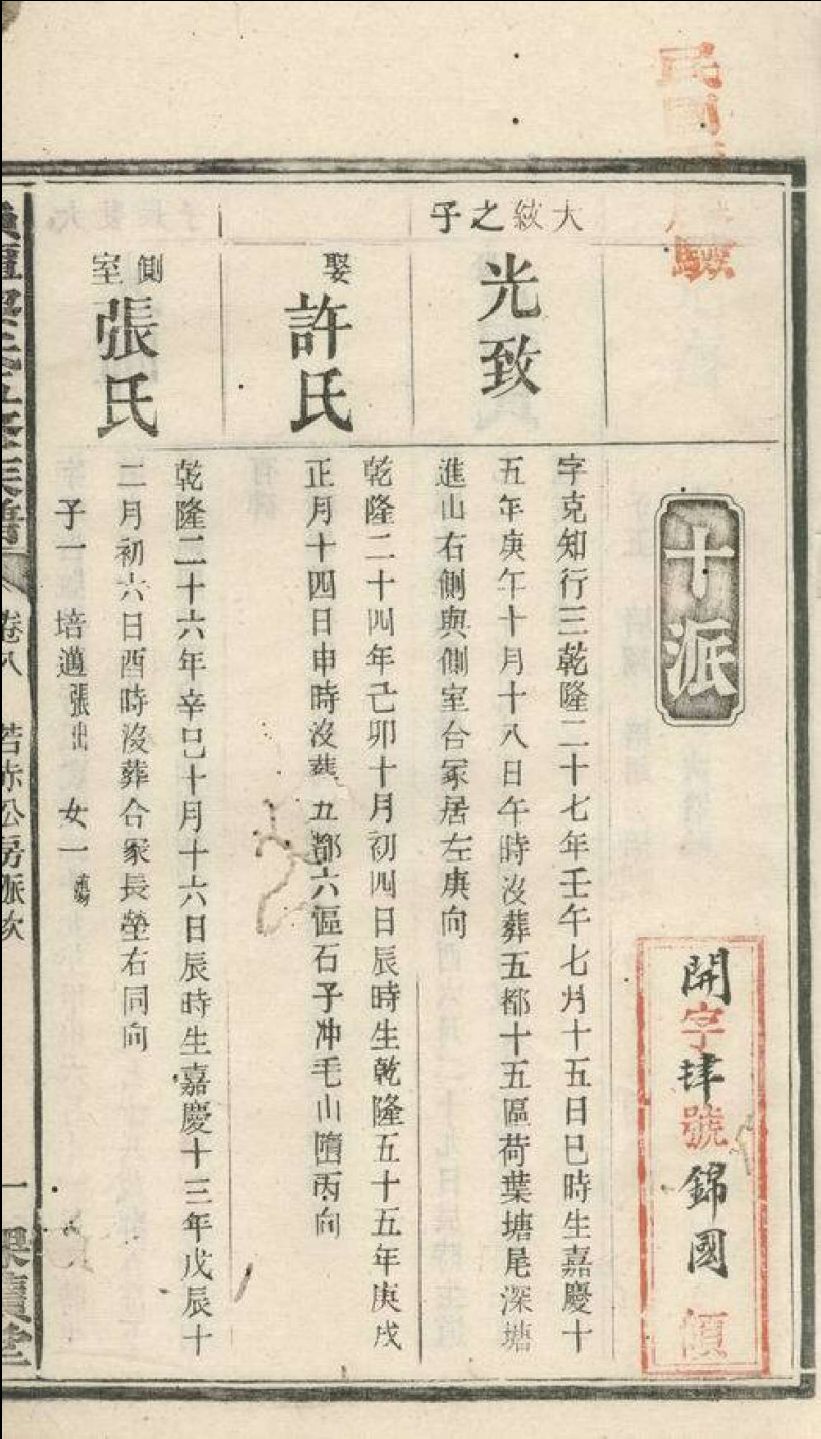 民國
驗
十派
開字肆號錦國領
大紋之子
光致
字克知行三乾隆二十七年壬午七月十五日巳時生嘉慶十
五年庚午十月十八日午時沒葬五都十五區荷葉塘尾深塘
進山右側與側室合冢居左庚向
娶許氏
乾隆二十四年己卯十月初四日辰時生乾隆五十五年庚戌
正月十四日申時沒葬五都六區石子冲毛山墻丙向
側室張氏
乾隆二十六年辛巳十月十六日辰時生嘉慶十三年戊辰十
二月初六日酉時沒葬合冢長塋右同向
子一 培邁張出 女一 適楊
氏 族譜 卷八 若赤公房派次 一